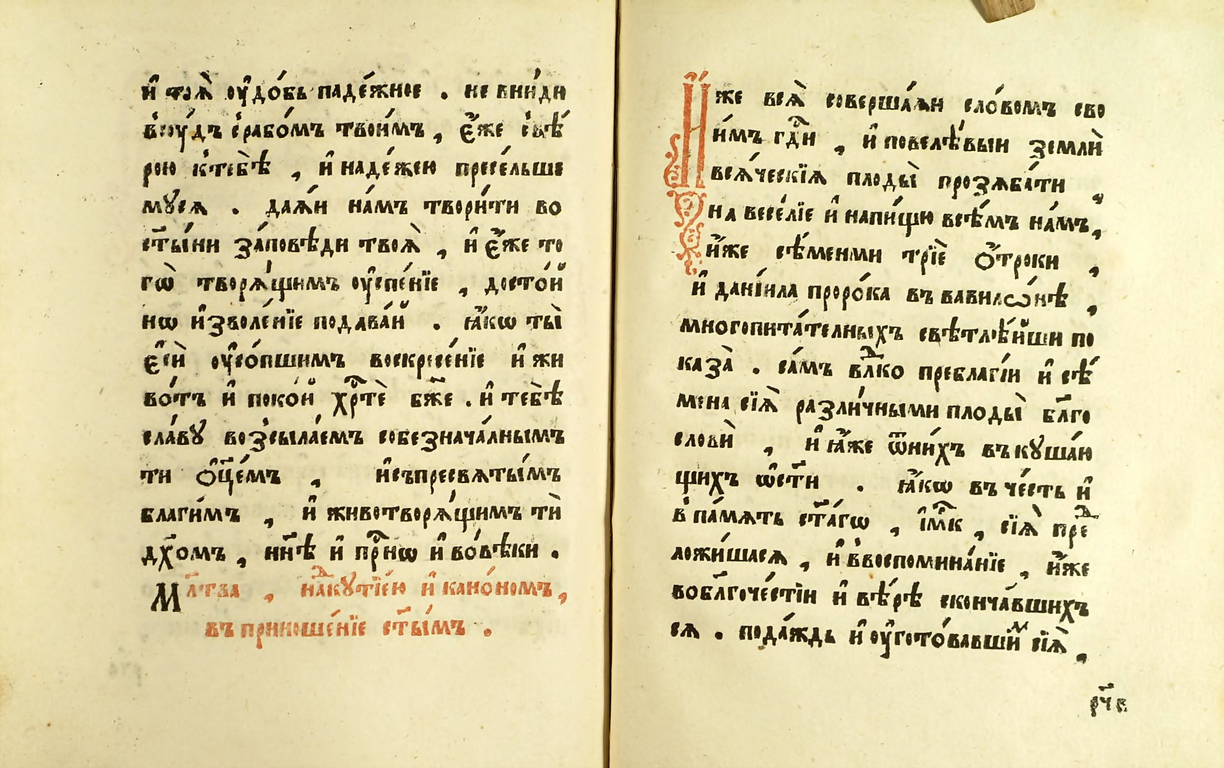 и҆ тоѧ̀ ᲂу҆до́бь паде́жное . не вни́ди
в̾сꙋ́дъ с̾рабо́мъ твои́мъ , є҆́же с̾вѣ́
рою к̾тебѣ̀ , и҆ наде́жею пресе́льше
мꙋсѧ . даѧ́и на́мъ твори́ти во
ст҃ы́ни за́повѣди твоѧ̀ , и҆ є҆́же то
гѡ̀ творѧ́щимъ ᲂу҆спе́нїе , досто́й
нѡ и҆зволе́нїе подава́й . ꙗ҆́кѡ ты̀
є҆сѝ ᲂу҆со́пшимъ воскресе́нїе и҆ жи
во́тъ и҆ поко́й хрⷭ҇тѐ бж҃е . и҆ тебѣ̀
сла́вꙋ возсыла́емъ собезнача́лнымъ
ти ѻ҆ц҃е́мъ , и҆съпресвѧты́мъ
благи́мъ , и҆ животворѧ́щимъ тѝ
дх҃омъ , нн҃ѣ и҆ при́нѡ и҆ во́вѣки .
Мл҃тва , наⷣкꙋтїе́ю и҆ кано́номъ ,
въ приноше́нїе ст҃ы́мъ .
И҆́же всѧ̀ соверша́ѧи сло́вомъ сво
и́мъ гдⷭ҇и , и҆ повелѣ́выи землѝ
всѧ́ческїѧ плоды̀ прозѧба́ти ,
на весе́лїе и҆ напи́щю всѣ́мъ на́мъ ,
и҆́же сѣ́менми трїѐ ѻ҆́троки ,
и҆ данїи́ла проро́ка въ вавилѡ́нѣ ,
многопита́телныхъ свѣтлѣ́йши по
каза̀ . са́мъ влⷣко преблагі́и и҆ сѣ́
мена сїѧ̀ разли́чными плоды̀ бл҃го
словѝ , и҆ ꙗ҆́же ѿни́хъ въкꙋша́ю
щихъ ѡ҆ст҃и . ꙗ҆́кѡ въ че́сть и҆
в̾ па́мѧть ст҃а́гѡ , і҆мⷬ҇к , сїѧ̀ преⷣ
ложи́шасѧ , и҆ в̾воспомина́нїе , и҆́же
вобл҃гоче́стїи и҆ вѣ́рѣ сконча́вшихъ
сѧ . пода́ждь и҆ ᲂу҆гото́вавшиⷨ сїѧ̀ ,
рч҃в